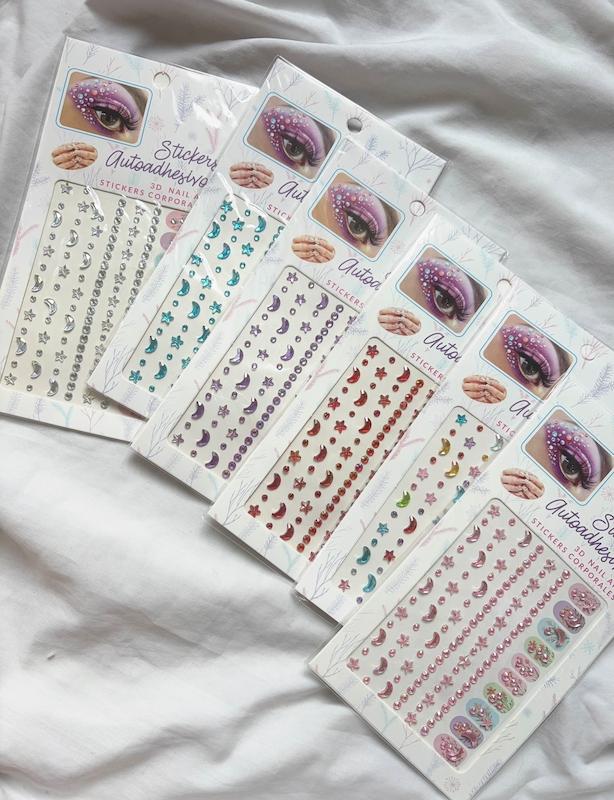 Stickers
Autoadhesivo
3D NAIL A
STICKERS CORPORA
Au
STICK
Autoa
STICKERS
Auto
STICKER
Au
STICK
St
Autoadhesivos
3D NAIL A
STICKERS CORPORALES